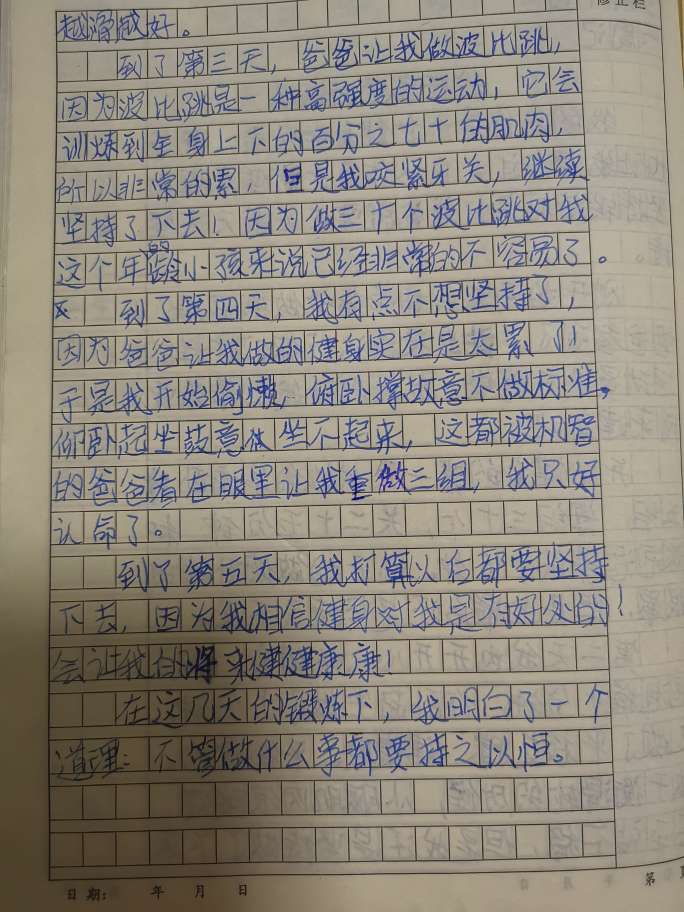 修正栏
越滑越好。
到了第三天，爸爸让我做波比跳，
因为波比跳是一种高强度的运动，它会
训练到全身上下的百分之七十的肌肉，
所以非常的累，但是我咬紧牙关，继续
坚持了下去！因为做三十个波比跳对我
这个年龄小孩来说已经非常的不容易了。
到了第四天，我有点不想坚持了，
因为爸爸让我做的健身实在是太累了！
于是我开始偷懒，俯卧撑故意不做标准，
仰卧起坐鼓意坐不起来，这都被机智
的爸爸看在眼里让我重做三组，我只好
认命了。
到了第五天，我打算以后都要坚持
下去，因为我相信健身对我是有好处的！
会让我的将来健健康康！
在这几天的锻炼下，我明白了一个
道理：不管做什么事都要持之以恒。
日期： 年 月 日
第